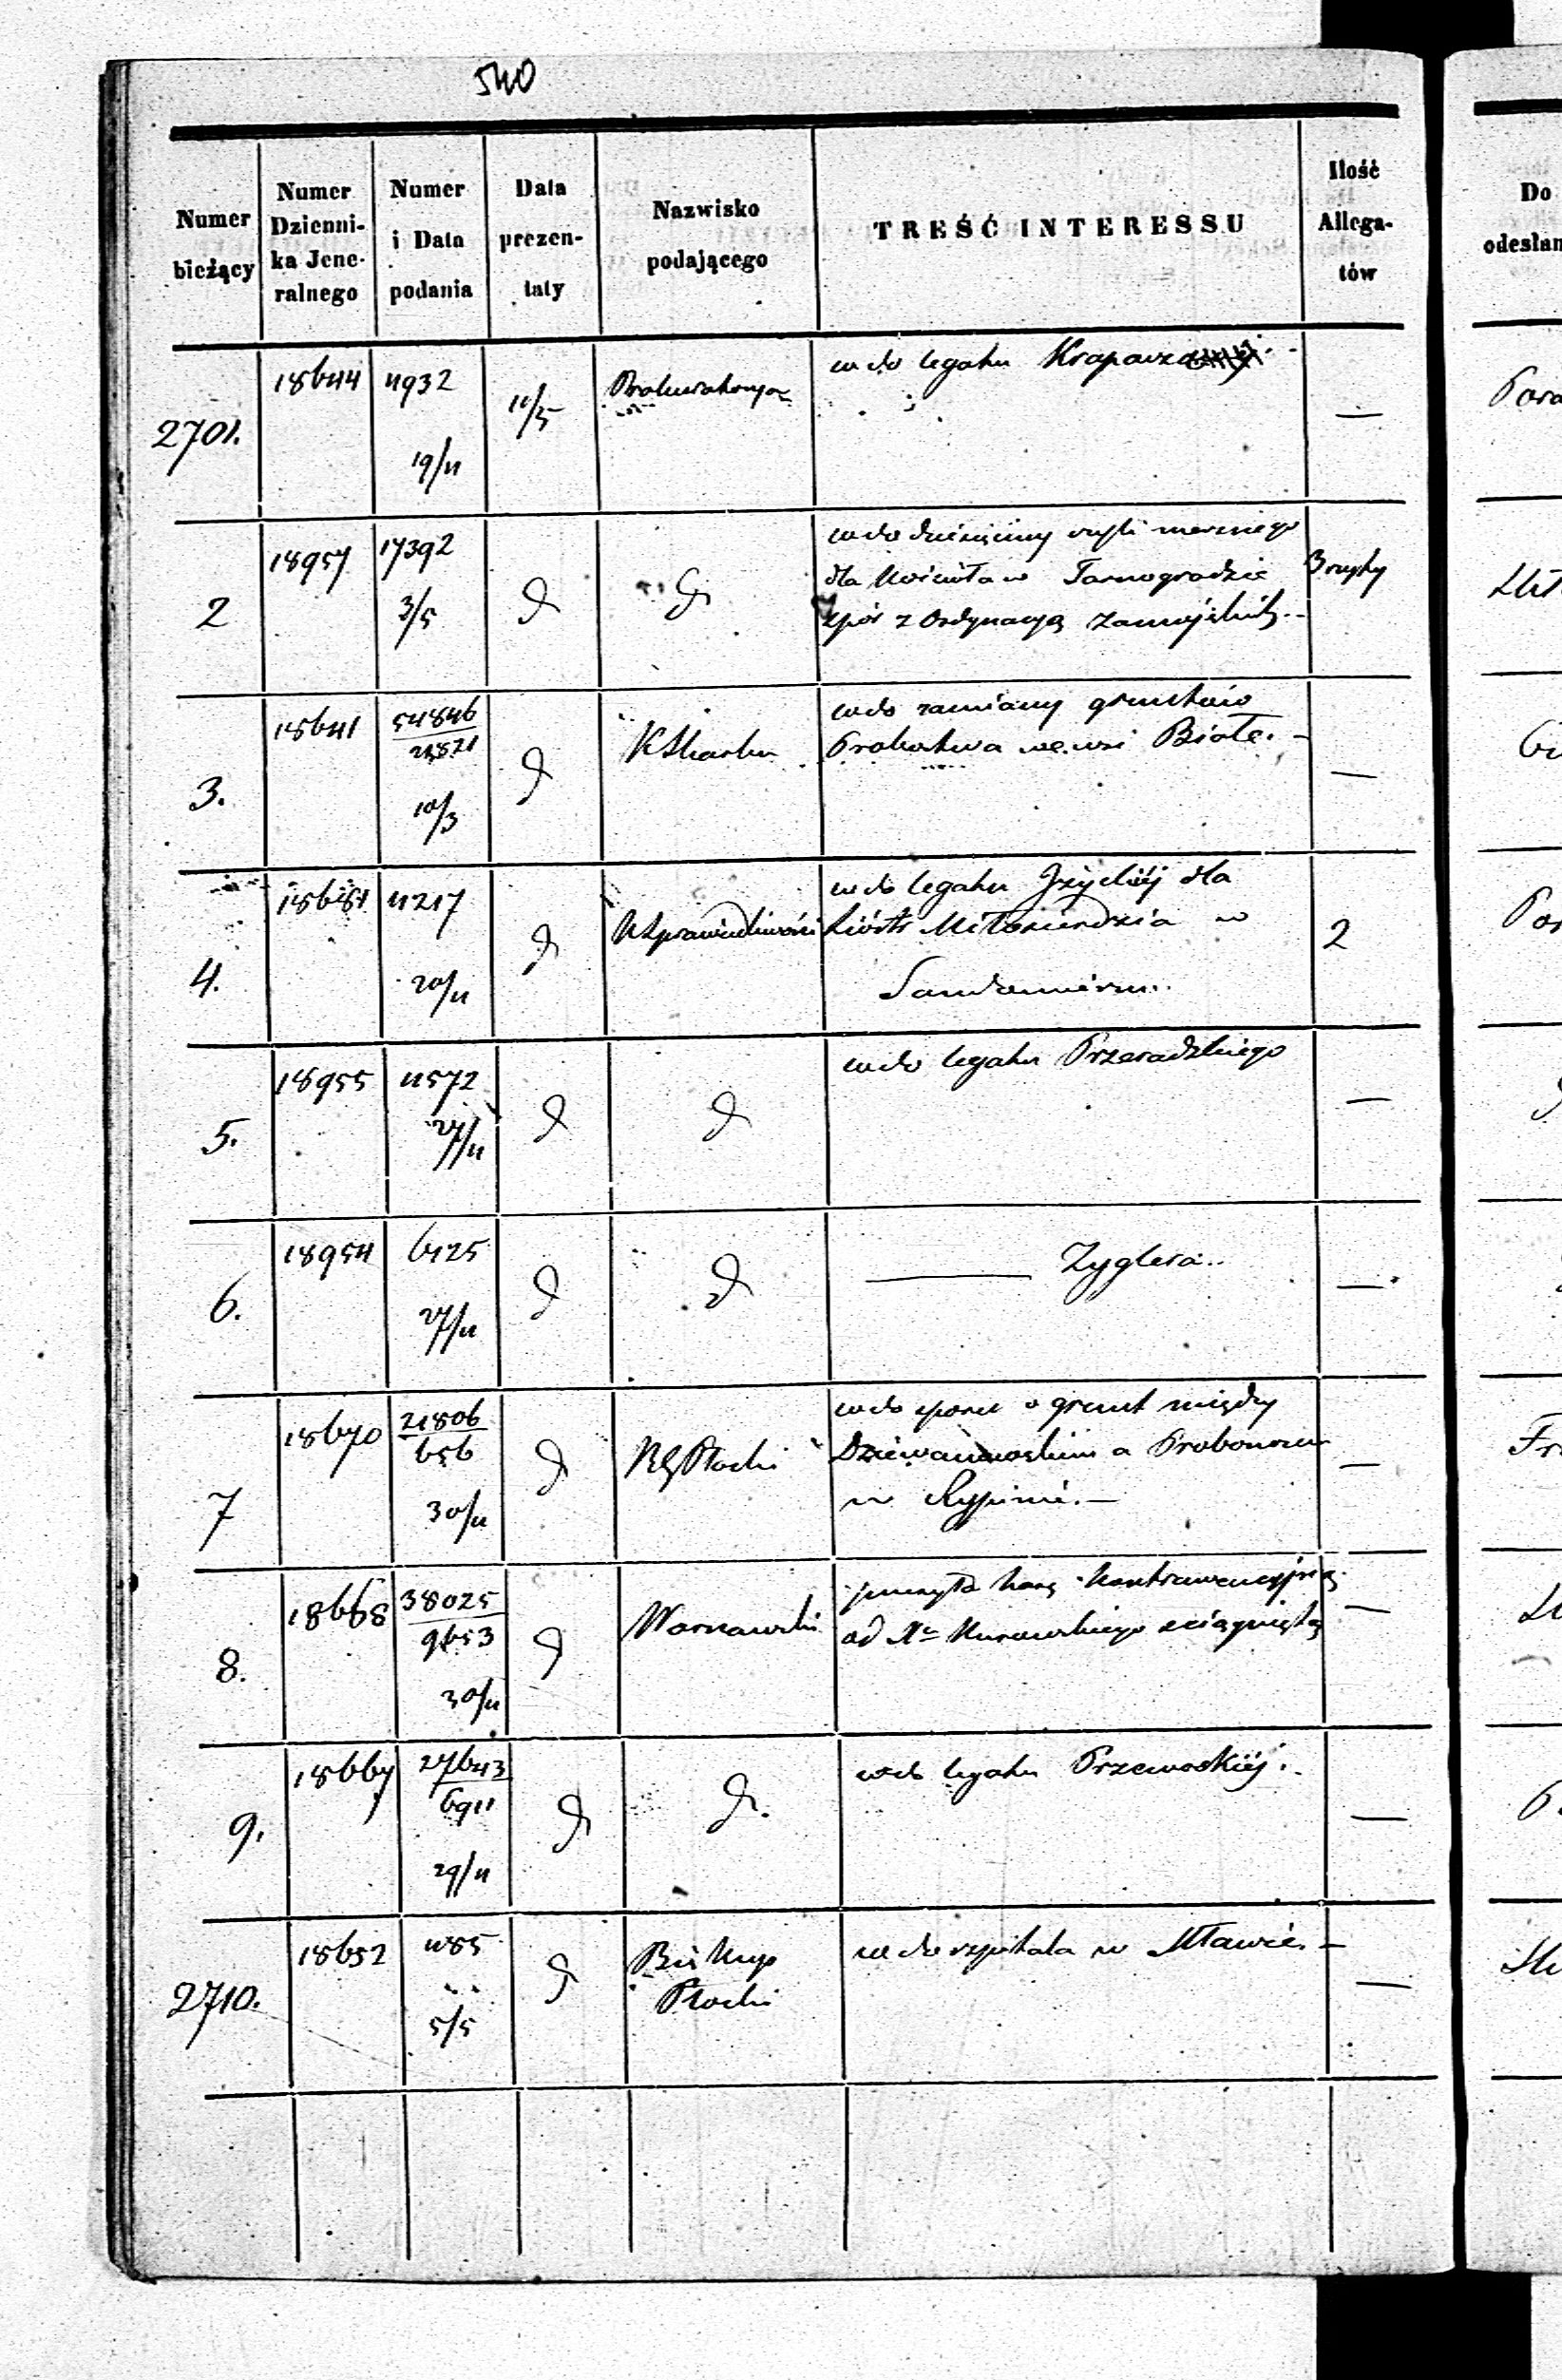 540
Numer bieżący
Numer Dzienni- ka Jene- ralnego
Numer i Data podania
Data prezen- taty
Nazwisko podającego
TREŚĆ INTERESSU
Ilość Allega- tów
Do odesłan
2701.
18644
4932
19/4
11/5
Prokuratorya
wdo legatu
—
2
18957
17392
3/5
d
d
wdo dziesięciny
dla Kościoła w Tarnogrodzie
spór z Ordynacyą Zamojskich
3
3.
18641
54846
21821
10/3
d
KSkarbu
wdo zamiany gruntów
Probostwa we wsi Białe. —
—
4.
4217
20/4
d
KSprawiedliwości
wdo legatu dla
Sióstr Miłosierdzia w
Sandomierzu
2
5.
18955
4572
27/4
d
d
wdo legatu Przeradzkiego
—
6.
18954
6125
27/4
d
d
— Zyglera
—
7
18670
21806
656
30/4
d
RGPłocki
wdo sporu o grunt między
Dziewanowskim a Proboszczem
w Rypinie. —
—
8.
18668
38025
9653
30/4
d
Warszawski
przesyła karę kontrawencyjną
od Xa Kurowskiego ściągniętą
—
9.
18667
27643
6911
29/4
d
d.
wdo legatu Przewoskiéj.
—
2710.
18652
485
5/5
d
Biskup
Płocki
wdo szpitala w Mławie. —
—